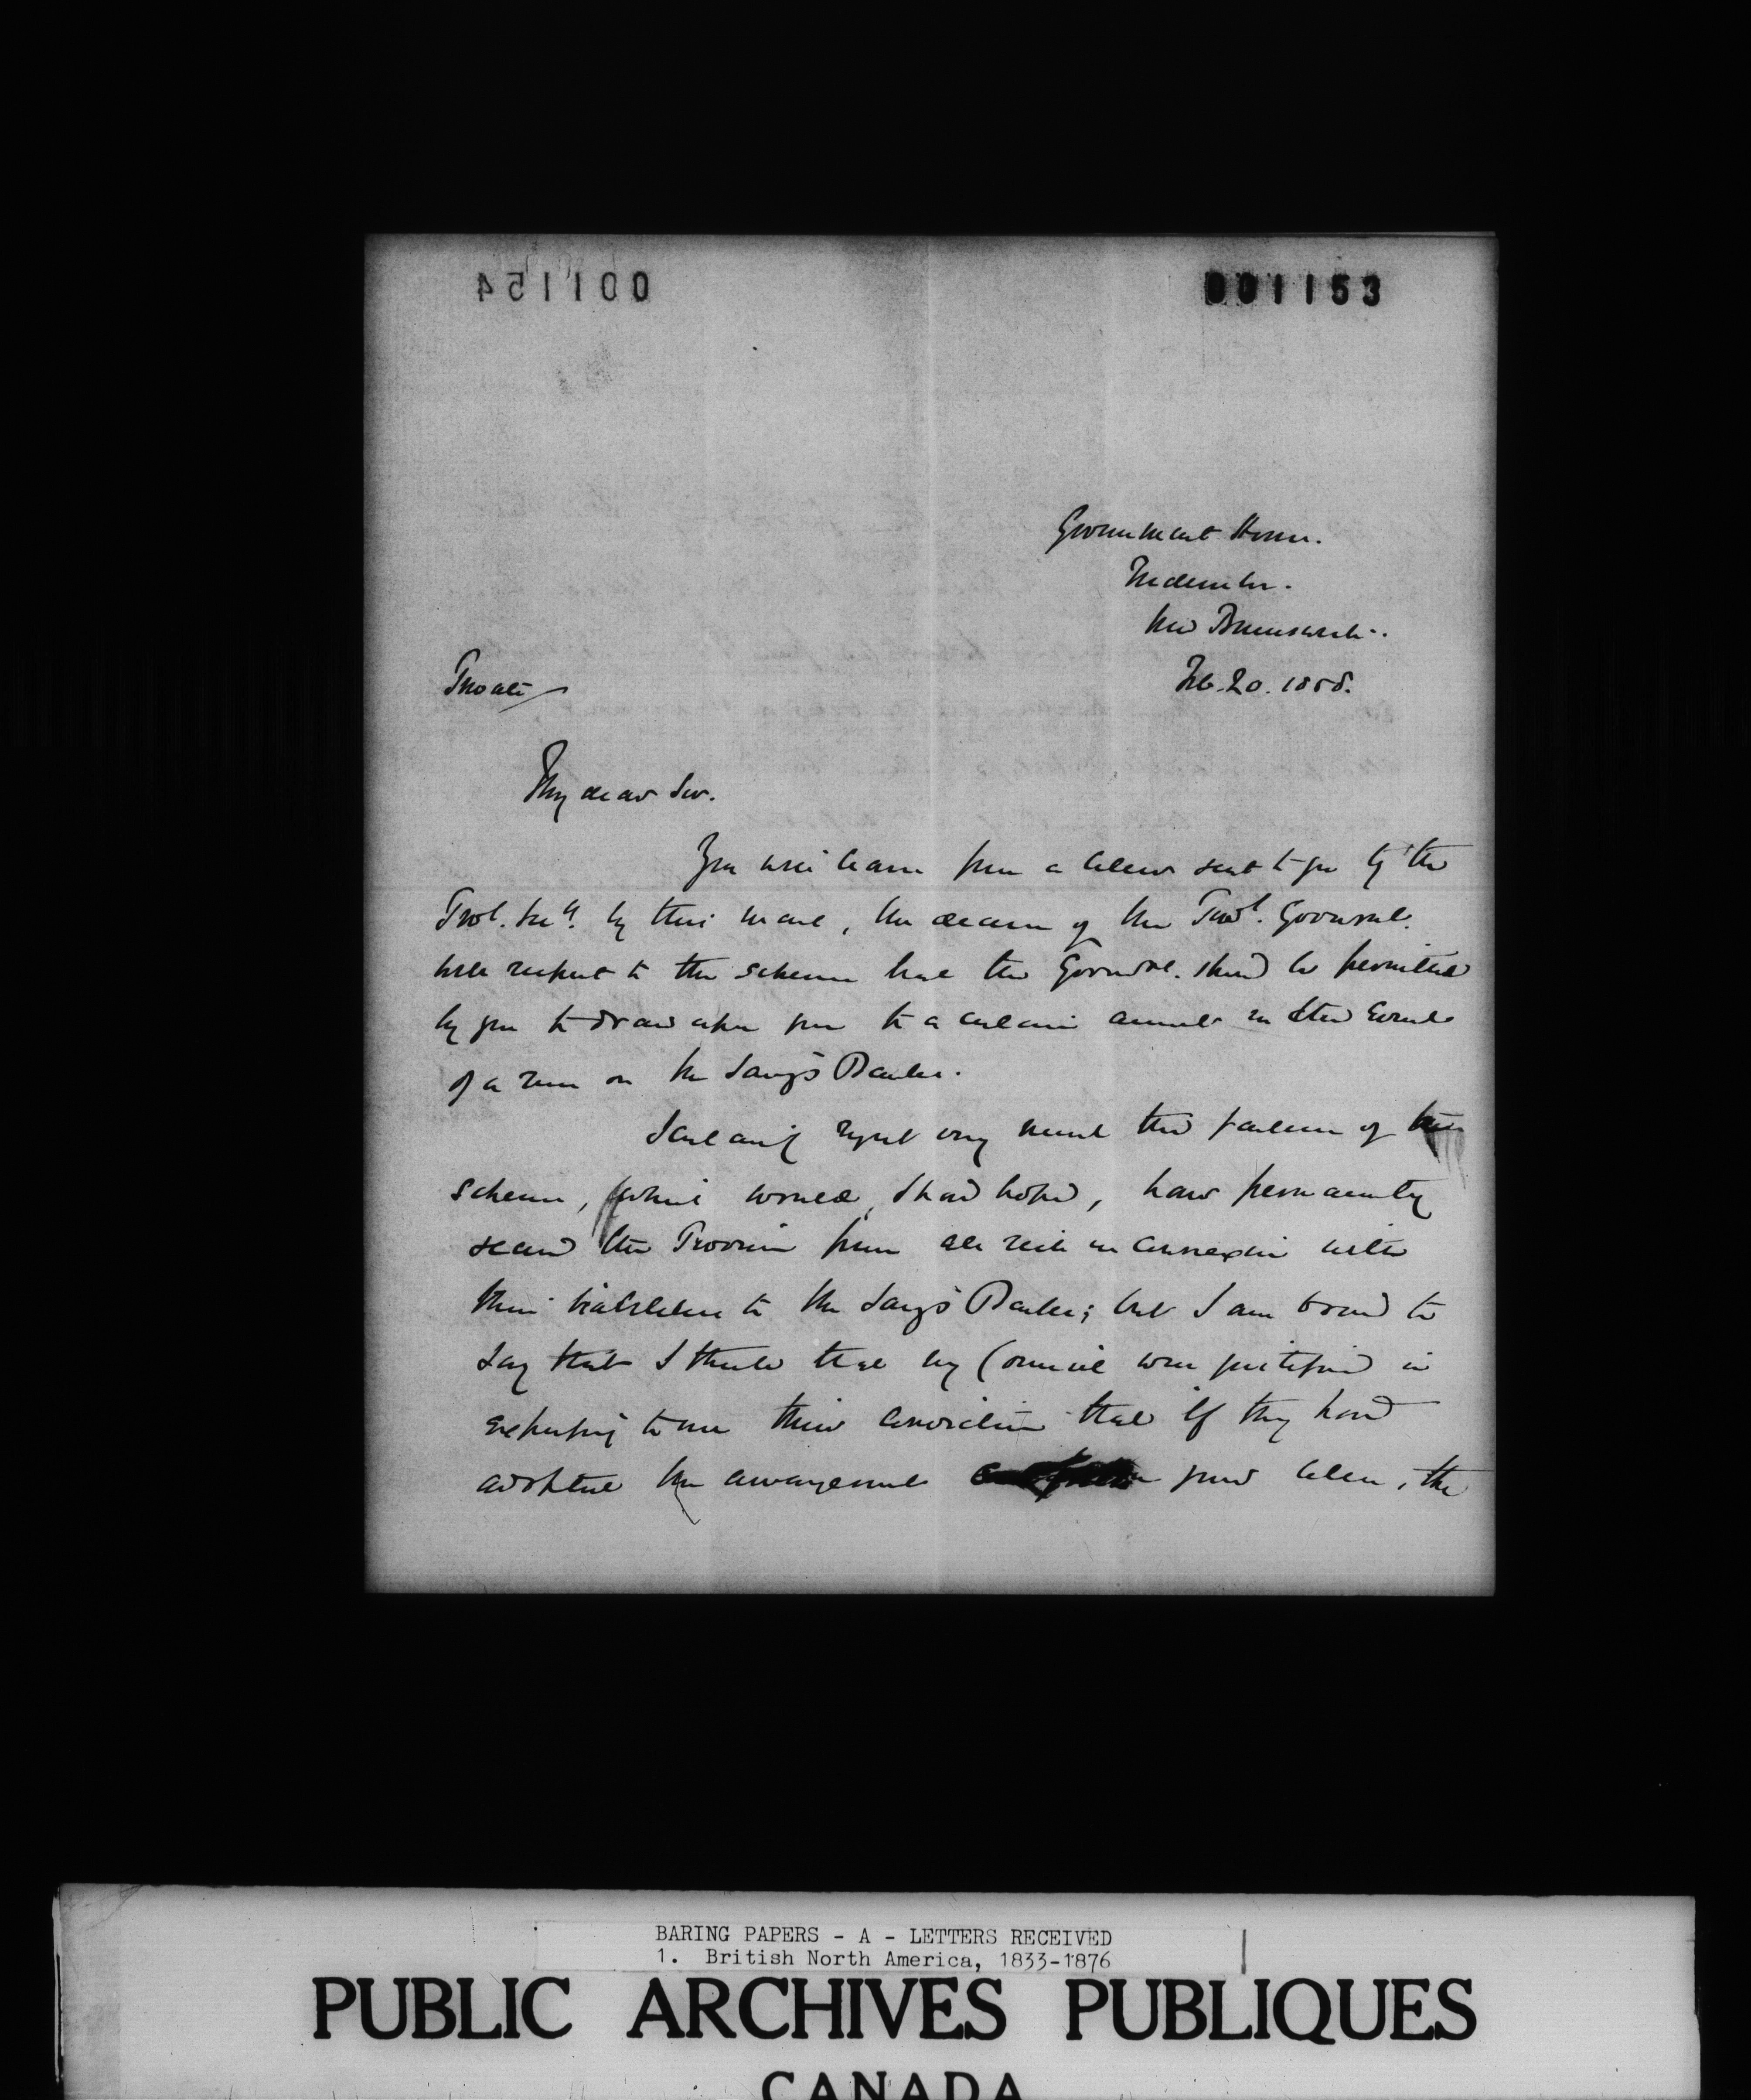 001154
001153
Government House.
Fredericton.
New Brunswick.
Feb. 20. 1858.
Private
My dear Sir.
You will learn from a letter sent to you by the
Provl. Secy. by this mail, the decision of the Provl. Governmt.
with respect to the scheme that the Governmt. should be permitted
by you to draw upon you to a certain amount in the event
of a run on the Savgs Banks.
I certainly regret very much the failure of this
scheme, which would, I had hoped, have permanently
secured the Province from all risk in connexion with
their liabilities to the Savgs Banks; but I am bound to
say that I think that my Council were justified in
expressing to me their conviction that if they had
adopted the arrangement your letter, the
BARING PAPERS - A - LETTERS RECEIVED
1. British North America, 1833-1876
PUBLIC ARCHIVES PUBLIQUES
CANADA